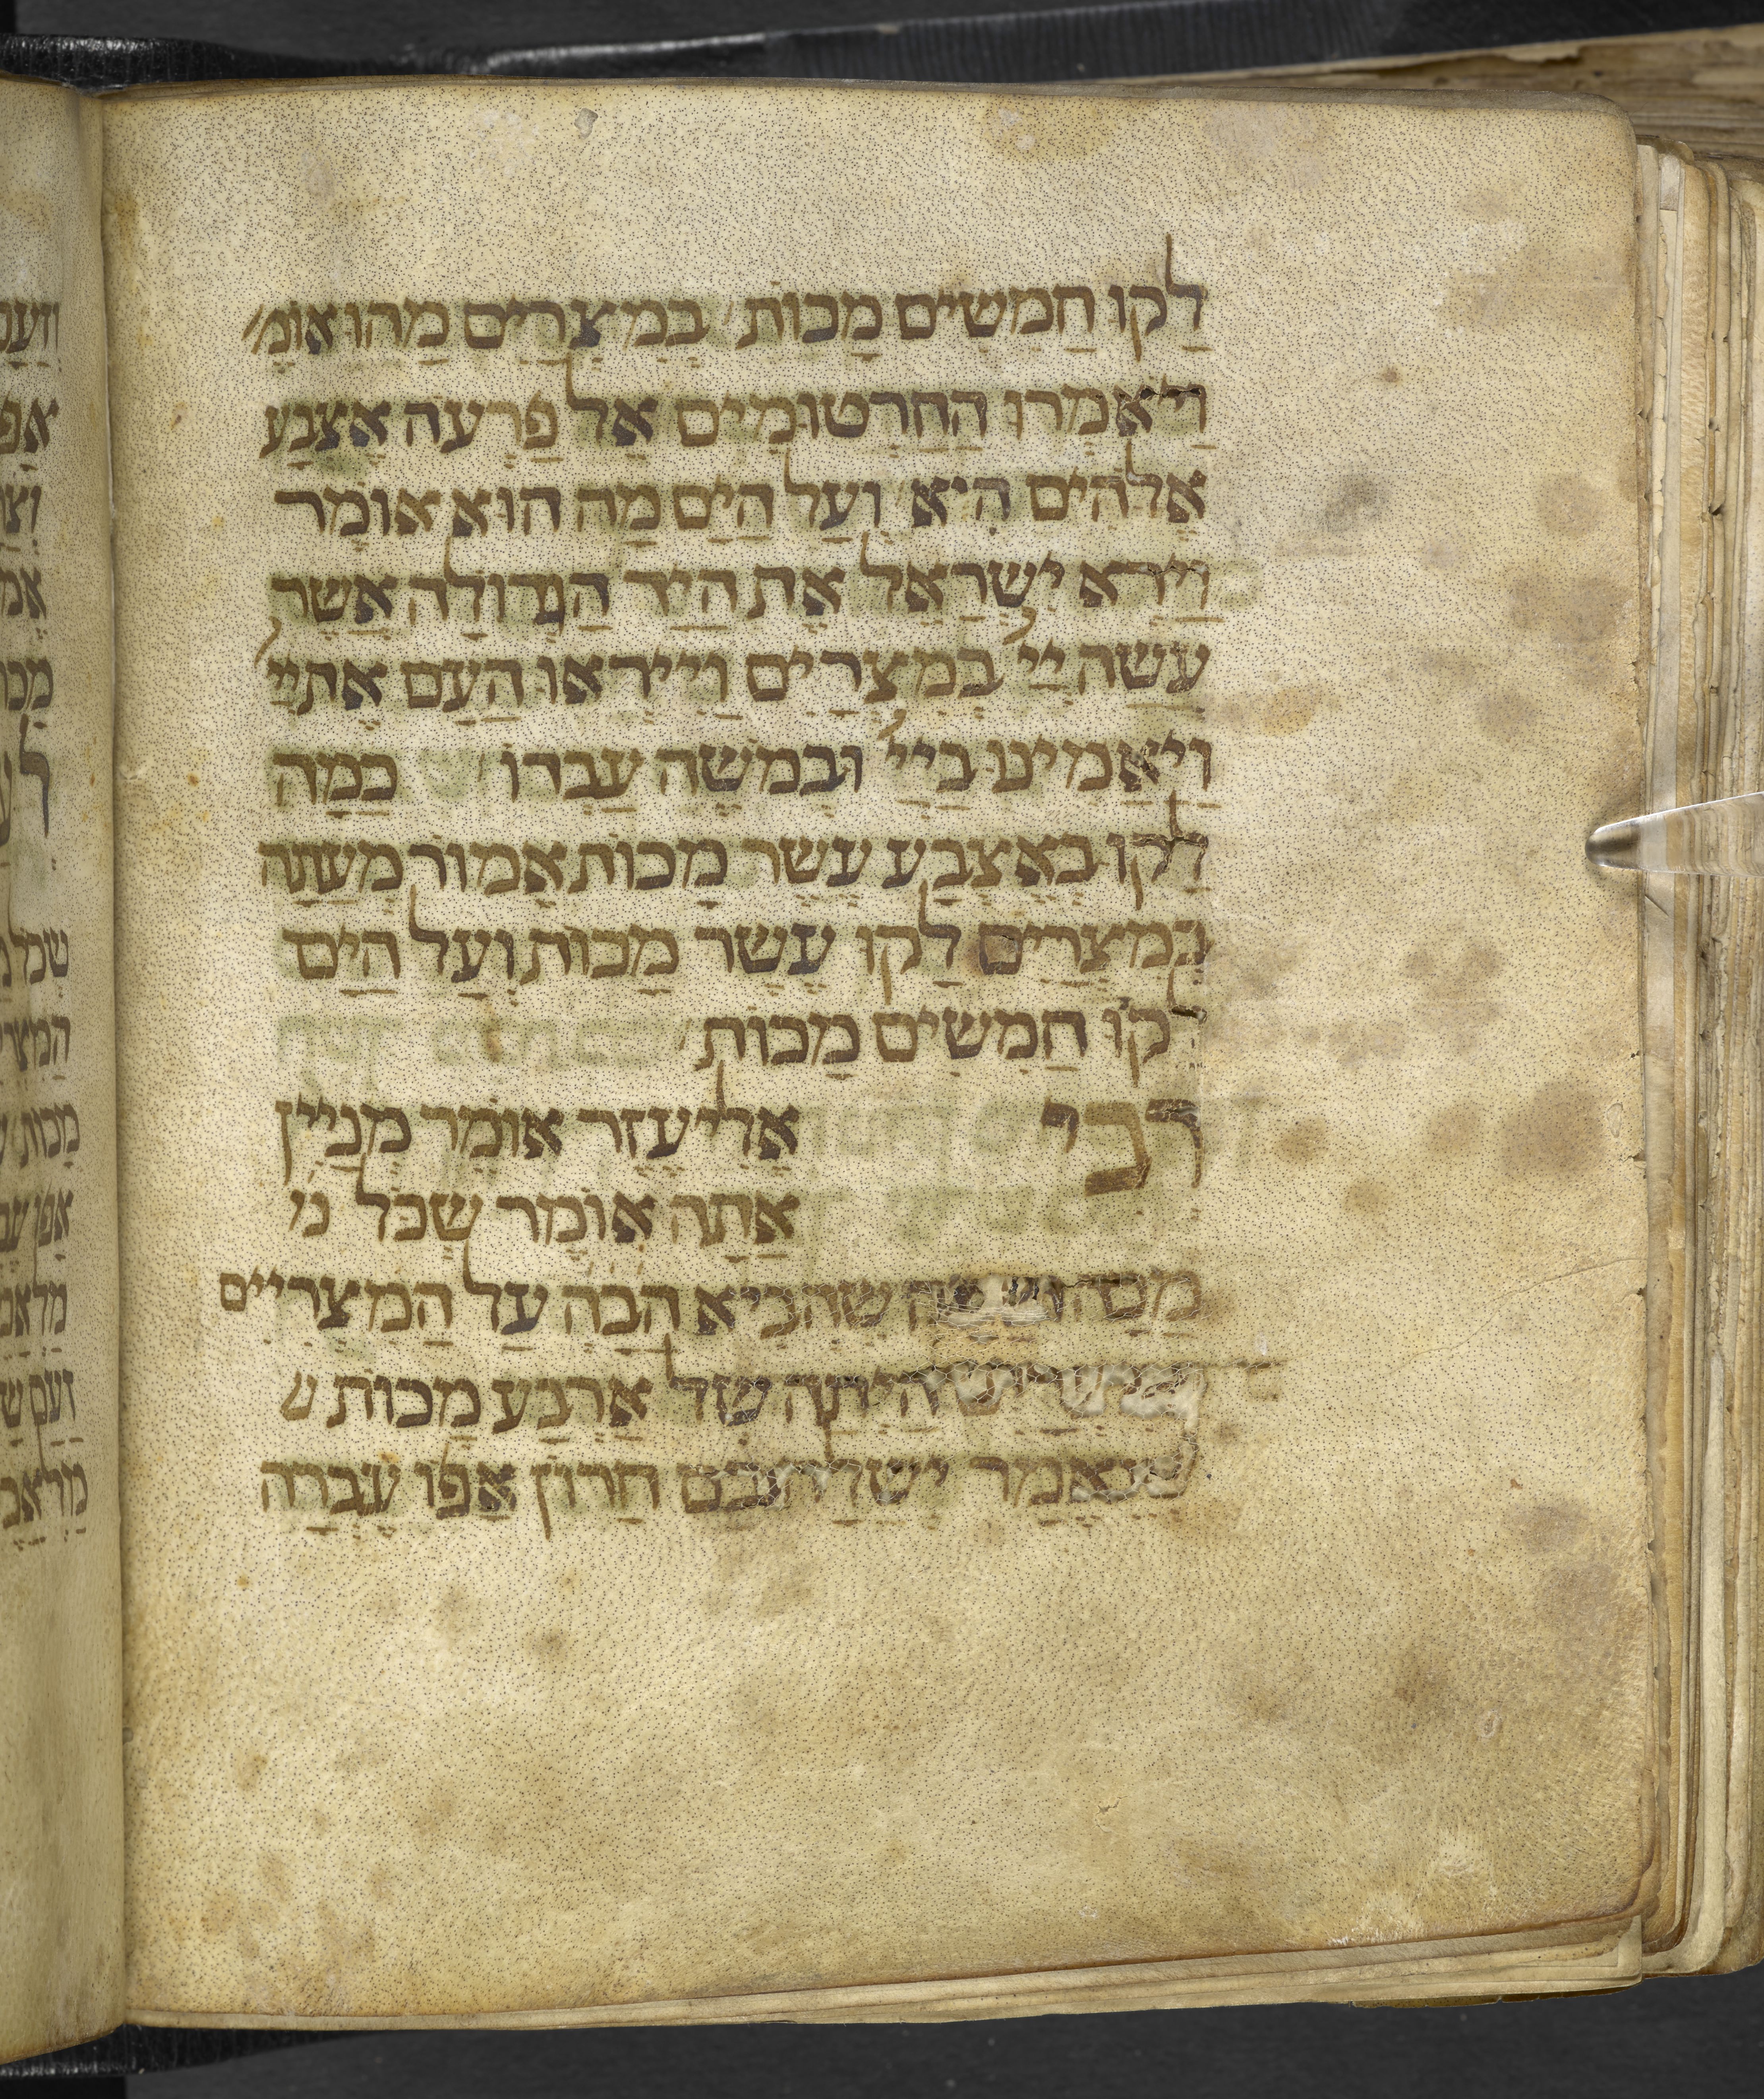 לָקוּ חֲמִשִׁים מַכּוֹת בְּמִצְרַיִם מַהוּ אוֹמֵ׳
וַיֹּאמְרוּ הַחַרְטוּמִּים אֶל פַּרְעֹה אֶצְבַּע
אֱלֹהִים הִיא וְעַל הַיָּם מַה הוּא אוֹמֵר
וַיַּרְא יִשְׂרָאֵל אֶת הַיָּד הַגְּדוֹלָה אֲשֶׁר
עָשָׂה יְיָ בְּמִצְרַיִם וַיִּירְאוּ הָעָם אֶת יְיָ
וַיַּאֲמִינוּ בַּיְיָ וּבְמֹשֶׁה עַבְדּוֹ כַּמָּה
לָקוּ בְּאֶצְבַּע עֶשֶׂר מַכּוֹת אֱמוֹר מֵעַתָּה
בְּמִצְרַיִם לָקוּ עֶשֶׂר מַכּוֹת וְעַל הַיָּם
לָקוּ חֲמִשִׁים מַכּוֹת
רַבִּי אֱלִיעֶזֶר אוֹמֵר מְנַיִין
אַתָּה אוֹמֵר שֶׁכָּל מ׳
מַכָּה שֶׁהֵבִיא הַבָּ״ה עַל הַמִּצְרִיִּים
הָיְתָה שֶׁל אַרְבַּע מַכּוֹת ש
שֶׁנֶּאֱמַר יְשַׁלַּח בָּם חֲרוֹן אַפּוֹ עֶבְרָה